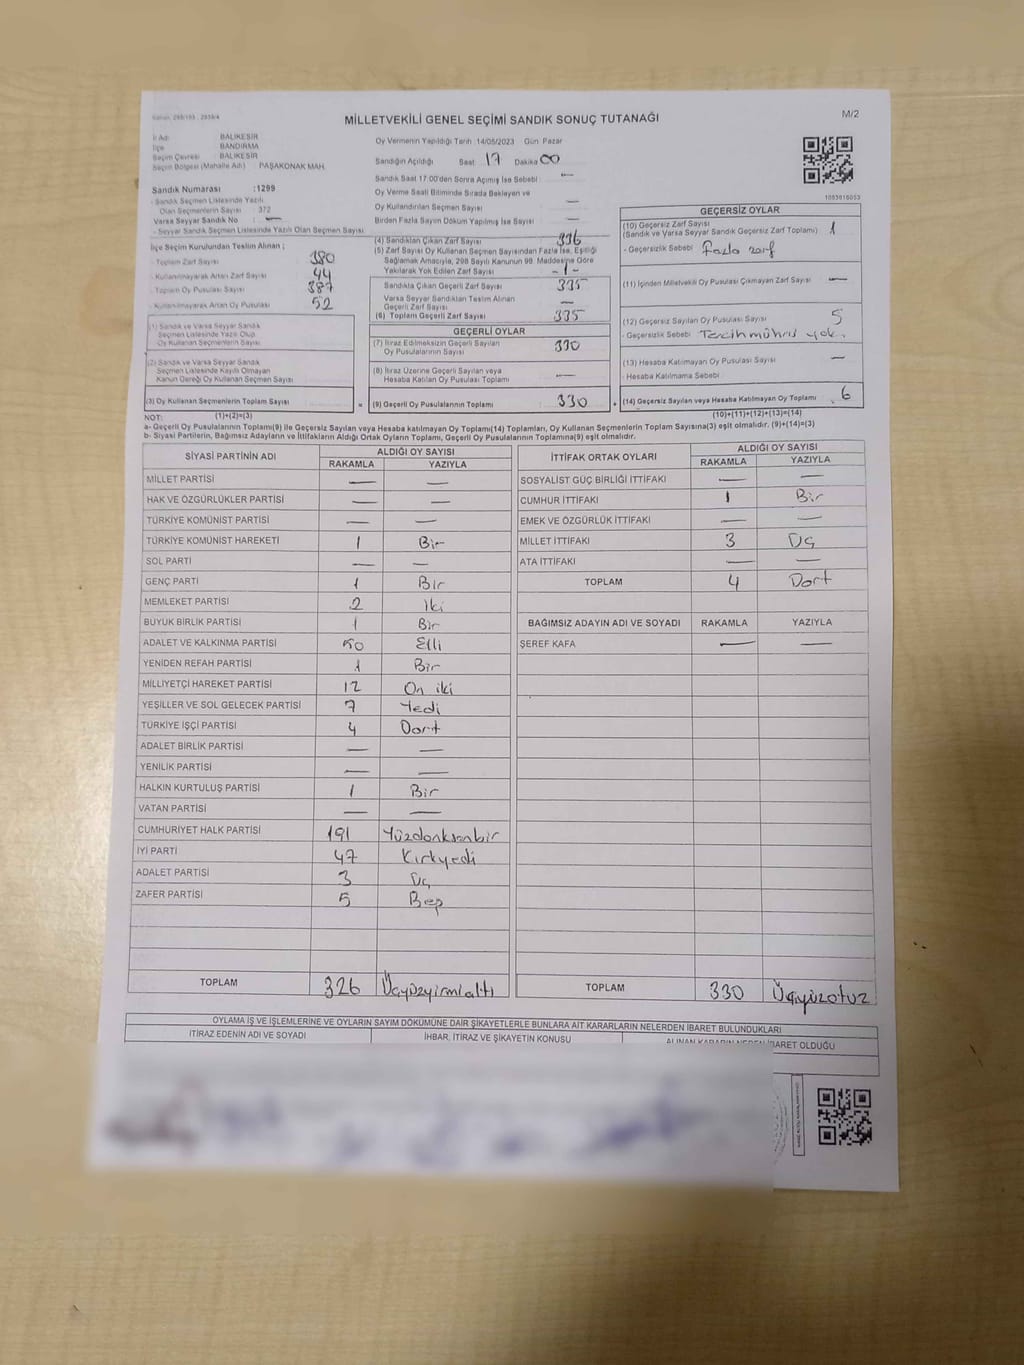 MİLLETVEKİLİ GENEL SEÇİMİ SANDIK SONUÇ TUTANAĞI
M/2
İl Adı BALIKESİR
İlçe BANDIRMA
Seçim Çevresi BALIKESİR
Seçim Bölgesi (Mahalle Adı) PAŞAKONAK MAH.
Oy Vermenin Yapıldığı Tarih 14/05/2023 Gün Pazar
Sandığın Açıldığı Saat 17 Dakika 00
Sandık Saat 17:00'den Sonra Açılmış İse Sebebi : —
Oy Verme Saati Bitiminde Sırada Bekleyen ve
Oy Kullandırılan Seçmen Sayısı —
Birden Fazla Sayım Döküm Yapılmış İse Sayısı —
Sandık Numarası :1299
- Sandık Seçmen Listesinde Yazılı
Olan Seçmenlerin Sayısı 372
Varsa Seyyar Sandık No : —
- Seyyar Sandık Seçmen Listesinde Yazılı Olan Seçmen Sayısı
İlçe Seçim Kurulundan Teslim Alınan ;
- Toplam Zarf Sayısı 380
- Kullanılmayarak Artan Zarf Sayısı 44
- Toplam Oy Pusulası Sayısı 387
- Kullanılmayarak Artan Oy Pusulası 52
(1) Sandık ve Varsa Seyyar Sandık
Seçmen Listesinde Yazılı Olup
Oy Kullanan Seçmenlerin Sayısı
(2) Sandık ve Varsa Seyyar Sandık
Seçmen Listesinde Kayıtlı Olmayan
Kanun Gereği Oy Kullanan Seçmen Sayısı
(3) Oy Kullanan Seçmenlerin Toplam Sayısı
(4) Sandıktan Çıkan Zarf Sayısı 336
(5) Zarf Sayısı Oy Kullanan Seçmen Sayısından Fazla İse, Eşitliği
Sağlamak Amacıyla, 298 Sayılı Kanunun 98. Maddesine Göre
Yakılarak Yok Edilen Zarf Sayısı -1-
Sandıkta Çıkan Geçerli Zarf Sayısı 335
Varsa Seyyar Sandıktan Teslim Alınan
Geçerli Zarf Sayısı —
(6) Toplam Geçerli Zarf Sayısı 335
GEÇERLİ OYLAR
(7) İtiraz Edilmeksizin Geçerli Sayılan
Oy Pusulalarının Sayısı 330
(8) İtiraz Üzerine Geçerli Sayılan veya
Hesaba Katılan Oy Pusulası Toplamı —
= (9) Geçerli Oy Pusulalarının Toplamı 330
1083816053
GEÇERSİZ OYLAR
(10) Geçersiz Zarf Sayısı
(Sandık ve Varsa Seyyar Sandık Geçersiz Zarf Toplamı) 1
- Geçersizlik Sebebi fazla zarf
(11) İçinden Milletvekili Oy Pusulası Çıkmayan Zarf Sayısı —
(12) Geçersiz Sayılan Oy Pusulası Sayısı 5
- Geçersizlik Sebebi Tercih mührü yok.
(13) Hesaba Katılmayan Oy Pusulası Sayısı —
- Hesaba Katılmama Sebebi
+ (14) Geçersiz Sayılan veya Hesaba Katılmayan Oy Toplamı 6
NOT: (1)+(2)=(3)
(10)+(11)+(12)+(13)=(14)
a- Geçerli Oy Pusulalarının Toplamı(9) ile Geçersiz Sayılan veya Hesaba katılmayan Oy Toplamı(14) Toplamları, Oy Kullanan Seçmenlerin Toplam Sayısına(3) eşit olmalıdır. (9)+(14)=(3)
b- Siyasi Partilerin, Bağımsız Adayların ve İttifakların Aldığı Ortak Oyların Toplamı, Geçerli Oy Pusulalarının Toplamına(9) eşit olmalıdır.
SİYASİ PARTİNİN ADI ALDIĞI OY SAYISI
RAKAMLA YAZIYLA
MİLLET PARTİSİ — —
HAK VE ÖZGÜRLÜKLER PARTİSİ — —
TÜRKİYE KOMÜNİST PARTİSİ — —
TÜRKİYE KOMÜNİST HAREKETİ 1 Bir
SOL PARTİ — —
GENÇ PARTİ 1 Bir
MEMLEKET PARTİSİ 2 İki
BÜYÜK BİRLİK PARTİSİ 1 Bir
ADALET VE KALKINMA PARTİSİ 50 Elli
YENİDEN REFAH PARTİSİ 1 Bir
MİLLİYETÇİ HAREKET PARTİSİ 12 On iki
YEŞİLLER VE SOL GELECEK PARTİSİ 7 Yedi
TÜRKİYE İŞÇİ PARTİSİ 4 Dört
ADALET BİRLİK PARTİSİ — —
YENİLİK PARTİSİ — —
HALKIN KURTULUŞ PARTİSİ 1 Bir
VATAN PARTİSİ — —
CUMHURİYET HALK PARTİSİ 191 Yüzdoksanbir
İYİ PARTİ 47 Kırkyedi
ADALET PARTİSİ 3 Üç
ZAFER PARTİSİ 5 Beş
TOPLAM 326 Üçyüzyirmialtı
İTTİFAK ORTAK OYLARI ALDIĞI OY SAYISI
RAKAMLA YAZIYLA
SOSYALİST GÜÇ BİRLİĞİ İTTİFAKI — —
CUMHUR İTTİFAKI 1 Bir
EMEK VE ÖZGÜRLÜK İTTİFAKI — —
MİLLET İTTİFAKI 3 Üç
ATA İTTİFAKI — —
TOPLAM 4 Dört
BAĞIMSIZ ADAYIN ADI VE SOYADI RAKAMLA YAZIYLA
ŞEREF KAFA — —
TOPLAM 330 Üçyüzotuz
OYLAMA İŞ VE İŞLEMLERİNE VE OYLARIN SAYIM DÖKÜMÜNE DAİR ŞİKAYETLERLE BUNLARA AİT KARARLARIN NELERDEN İBARET BULUNDUKLARI
İTİRAZ EDENİN ADI VE SOYADI İHBAR, İTİRAZ VE ŞİKAYETİN KONUSU ALINAN KARARIN NEDEN İBARET OLDUĞU